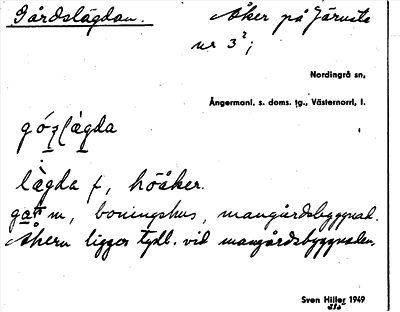 Gårdslägdan.
Åker på Järesta
nr 3²;
Nordingrå sn,
Ångermanl. s. doms. tg., Västernorrl. l.
lägda f, höåker.
m, boningshus, mangårdsbyggnad.
Åkern ligger tydl. vid mangårdsbyggnaden.
Sven Hiller 1949